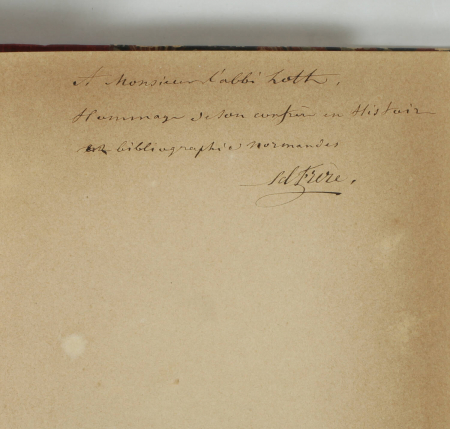 A Monsieur l'abbé Loth,
Hommage de son confrère en Histoire
et bibliographie normandes
Ed Frère.